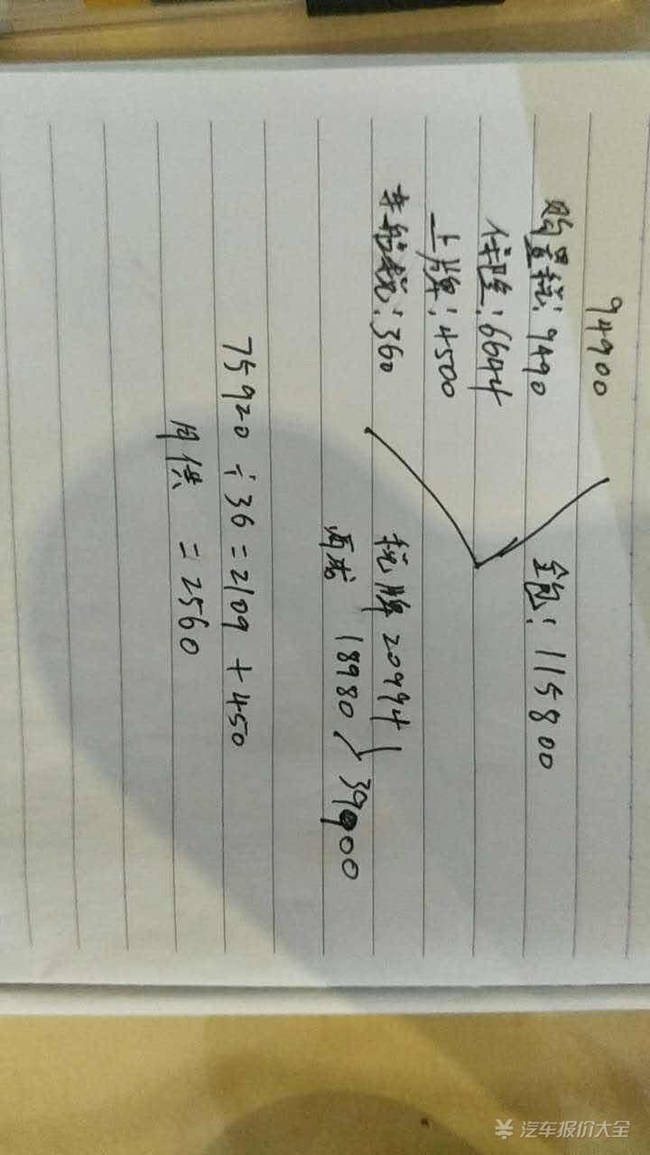 94900
购置税:9490
保险:6644
全包:115800
上牌:4500
车船税:360
税牌 20994
两成 18980
39900
75920÷36=2109+450
月供 =2560
¥ 汽车报价大全